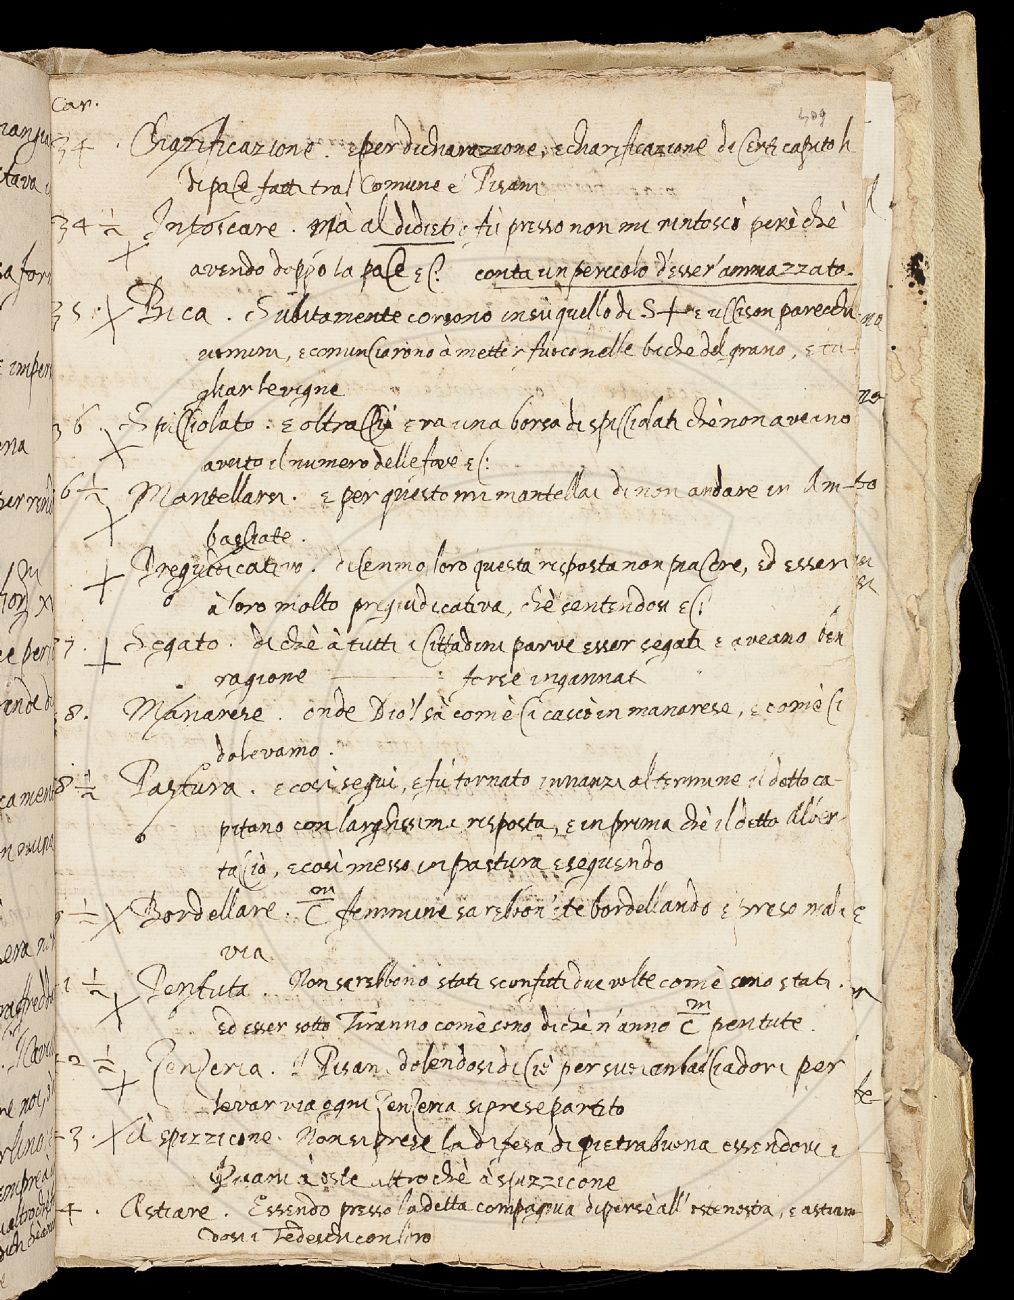 Car.
34. Chiarificazione. E per dichiarazione, e chiarificazione di Certi capitoli
di pace fatti tra'l Comune e' Pisani
34 1/2 Intoscare. Mà al didietro fù presso non mi rintoscò perè chè
avendo doppo la pace &c: conta un pericolo d'esser' ammazzato.
35. Bica. Subitamente corsono in sù quello di S+ e uccison parecchi
uomini, e cominciarono à metter fuoco nelle biche del grano, e ta-
gliar le vigne
36. Spicciolato. E oltracciò era una borsa di spicciolati chè non aveano
avuto il numero delle fave &c:
6 1/2 Mantellarsi. E per questo mi mantellai di non andare in Am-
basciate.
Pregiudicativo. dicemmo loro questa risposta non piacere, ed esser
à loro molto pregiudicativa, chè sentendosi &c:
37. Segato. di chè à tutti i Cittadini parve esser segati e aveano ben
ragione forse ingannati
8. Manarese. Onde Dio'l sà com'è ci cascò in manarese, e com'è ci
dolevamo.
8 1/2 Pastura. E così seguì, e fù tornato innanzi al termine il detto ca-
pitano con larghissima risposta, e in prima chè il detto Alber-
taccio, e così messo in pastura eseguendo
1/2 Bordellare. m/C femmine sarebbon' ite bordellando e preso mala
via
1 1/2 Pentuta. Non sarebbono stati sconfitti due volte com'è sono stati.
ed esser sotto Tiranno com'è sono di chè n'anno m/C pentute.
2 1/2 Zenzeria. I Pisani dolendosi di ciò per suoi ambasciadori per
levar via ogni zenzeria si prese partito
3. A spizzicone. Non si prese la difesa di pietrabuona essendovi i
Pisani à oste altro chè à spizzicone
4. Astiare. Essendo presso la detta compagnia disperse all'oste nostra, e astian-
dosi i Tedeschi con loro